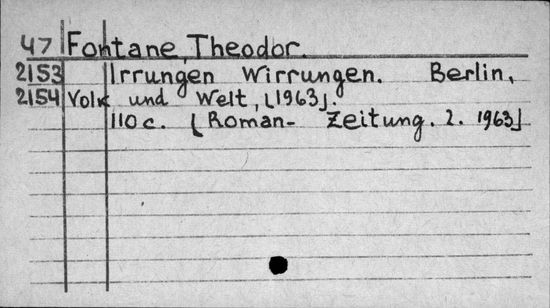 47 Fontane, Theodor.
2153 Irrungen Wirrungen. Berlin,
2154 Volk und Welt, [1963].
110 c. [Roman- Zeitung. 2. 1963]